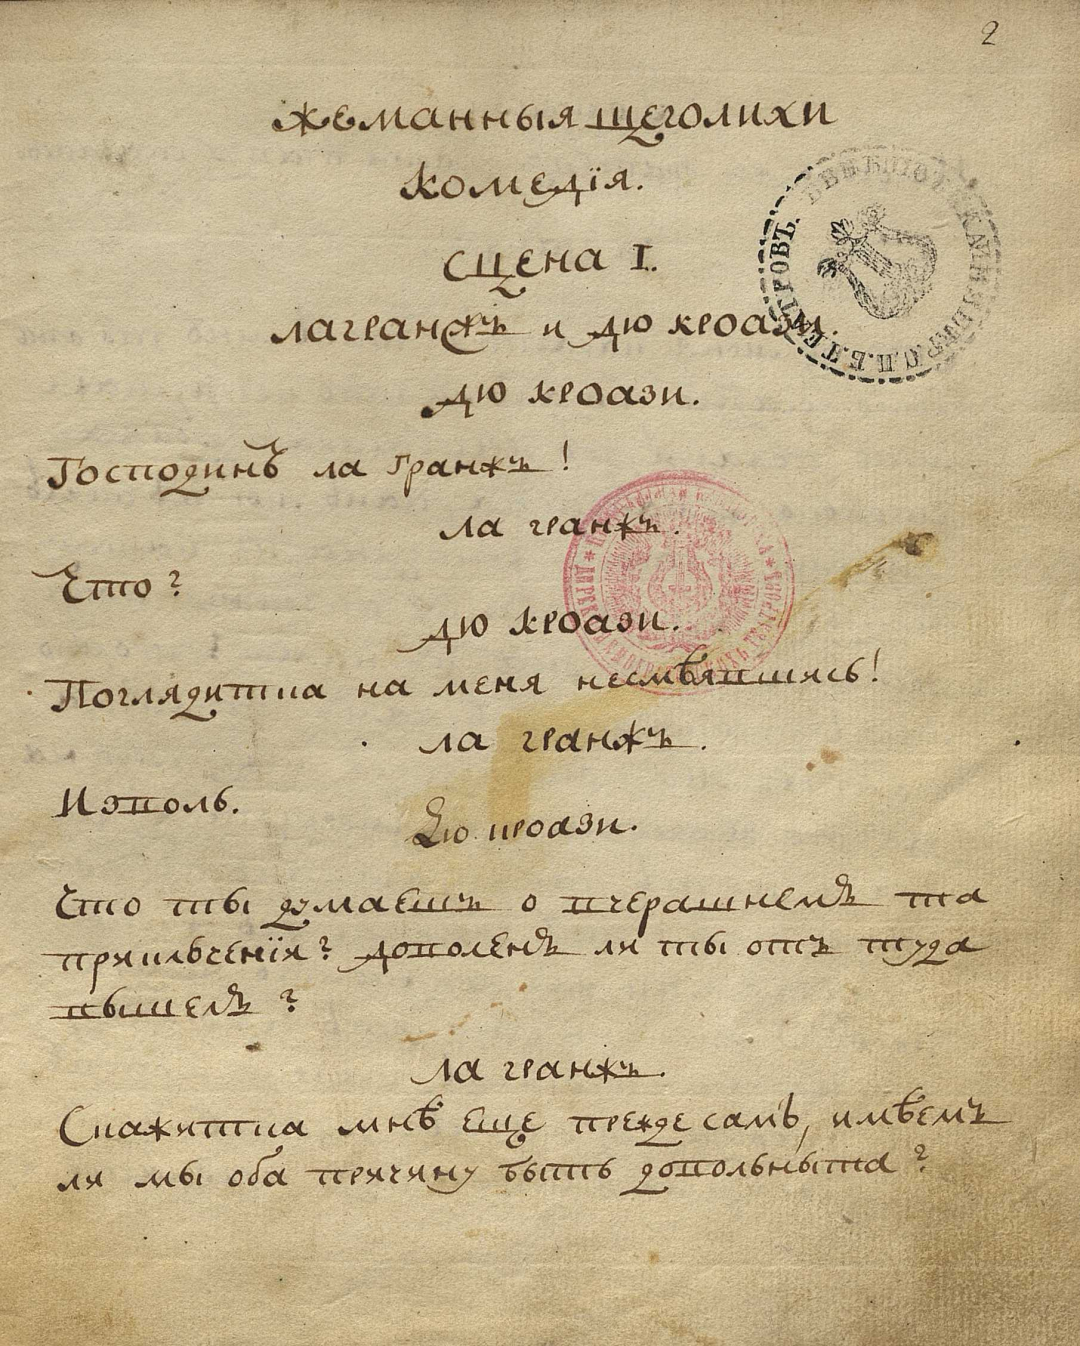 2
Жеманныя щеголихи
комедїя.
сцена I.
лагранжъ и дю кроази.
дю кроази.
Господинъ ла гранжъ!
ла гранжъ.
Что?
дю кроази.
Поглядитка на меня несмѣявшись!
ла гранжъ.
Изволь.
Дю кроази.
Что ты думаешъ о вчерашнемъ на
приключенїя? доволенъ ли ты отъ туда
вышелъ?
ла гранжъ.
Скажитка мнѣ еще прежде самъ, имѣемъ
ли мы оба причину быть довольныта?